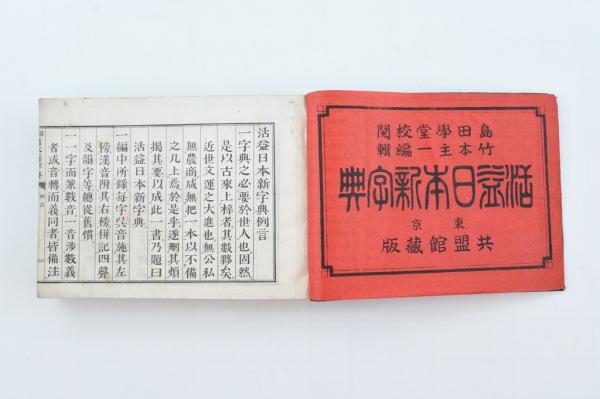 島田學堂校閲
竹本主一編輯
活益日本新字典
東京
共盟館藏版
活益日本新字典例言
一字典之必要於世人也固然
是以古來上梓者其數夥矣
近世文運之大進也無公私
無農商咸無把一本以不備
之几上焉於是乎遂刪其煩
揭其要以成此一書乃題曰
活益日本新字典
一編中所錄每字吳音施其左
傍漢音附其右傍併記四聲
及韻字等總從舊慣
一一字而兼數音一音涉數義
者或音轉而義同者皆備注